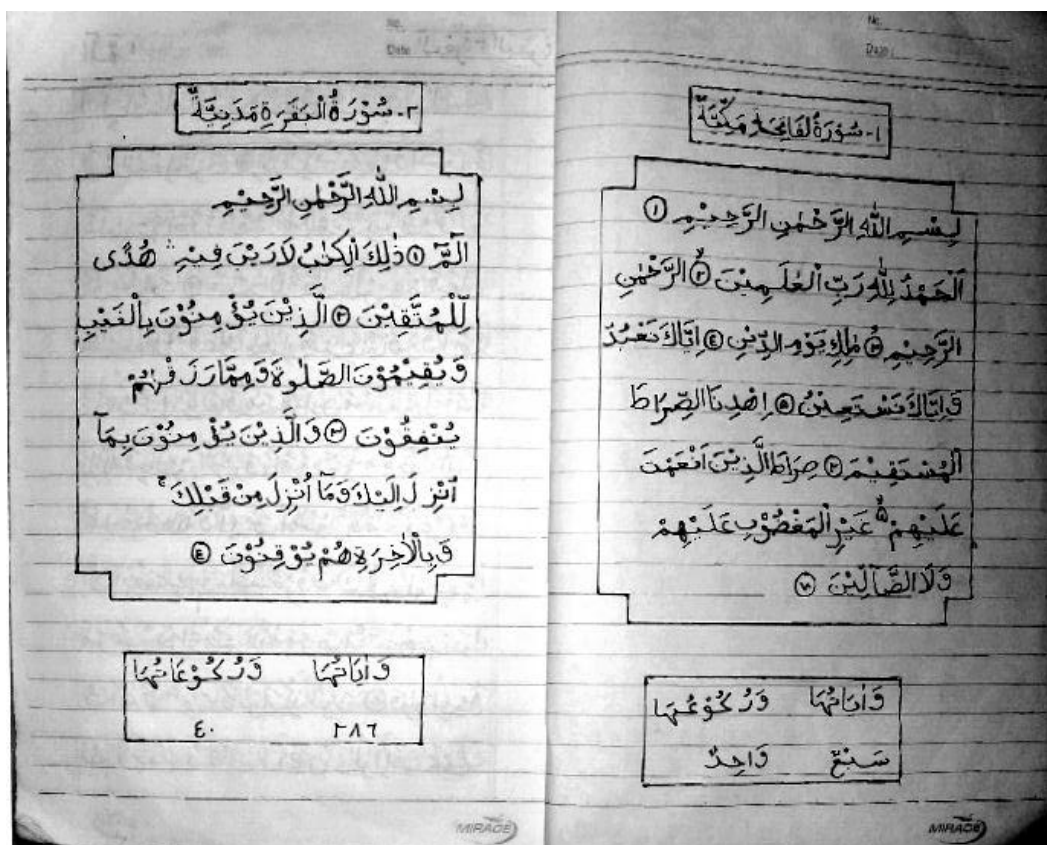 No.
Date :
١- سُوْرَةُ لْفَاتِحَةِ مَكِّيَّةٌ
بِسْمِ اللّٰهِ الرَّحْمٰنِ الرَّحِيْمِ ①
اَلْحَمْدُ لِلّٰهِ رَبِّ الْعٰلَمِيْنَ ۙ② الرَّحْمٰنِ
الرَّحِيْمِ ۙ③ مٰلِكِ يَوْمِ الدِّيْنِ ④ اِيَّاكَ نَعْبُدُ
وَاِيَّاكَ نَسْتَعِيْنُ ⑤ اِهْدِنَا الصِّرَاطَ
الْمُسْتَقِيْمَ ⑥ صِرَاطَ الَّذِيْنَ اَنْعَمْتَ
عَلَيْهِمْ ۙ غَيْرِ الْمَغْضُوْبِ عَلَيْهِمْ
وَلَا الضَّآلِّيْنَ ⑦
وَاٰيَاتُهَا وَرُكُوْعُهَا
سَبْعٌ وَاحِدٌ
MIRAGE
No.
Date
٢- سُوْرَةُ الْبَقَرَةِ مَدَنِيَّةٌ
بِسْمِ اللّٰهِ الرَّحْمٰنِ الرَّحِيْمِ
الٓمّٓ ① ذٰلِكَ الْكِتٰبُ لَارَيْبَ فِيْهِ ۛ هُدًى
لِّلْمُتَّقِيْنَ ② الَّذِيْنَ يُؤْمِنُوْنَ بِالْغَيْبِ
وَيُقِيْمُوْنَ الصَّلٰوةَ وَمِمَّا رَزَقْنٰهُمْ
يُنْفِقُوْنَ ③ وَالَّذِيْنَ يُؤْمِنُوْنَ بِمَآ
اُنْزِلَ اِلَيْكَ وَمَآ اُنْزِلَ مِنْ قَبْلِكَ ۚ
وَبِالْاٰخِرَةِ هُمْ يُوْقِنُوْنَ ④
وَاٰيَاتُهَا وَرُكُوْعَاتُهَا
٢٨٦ ٤٠
MIRAGE